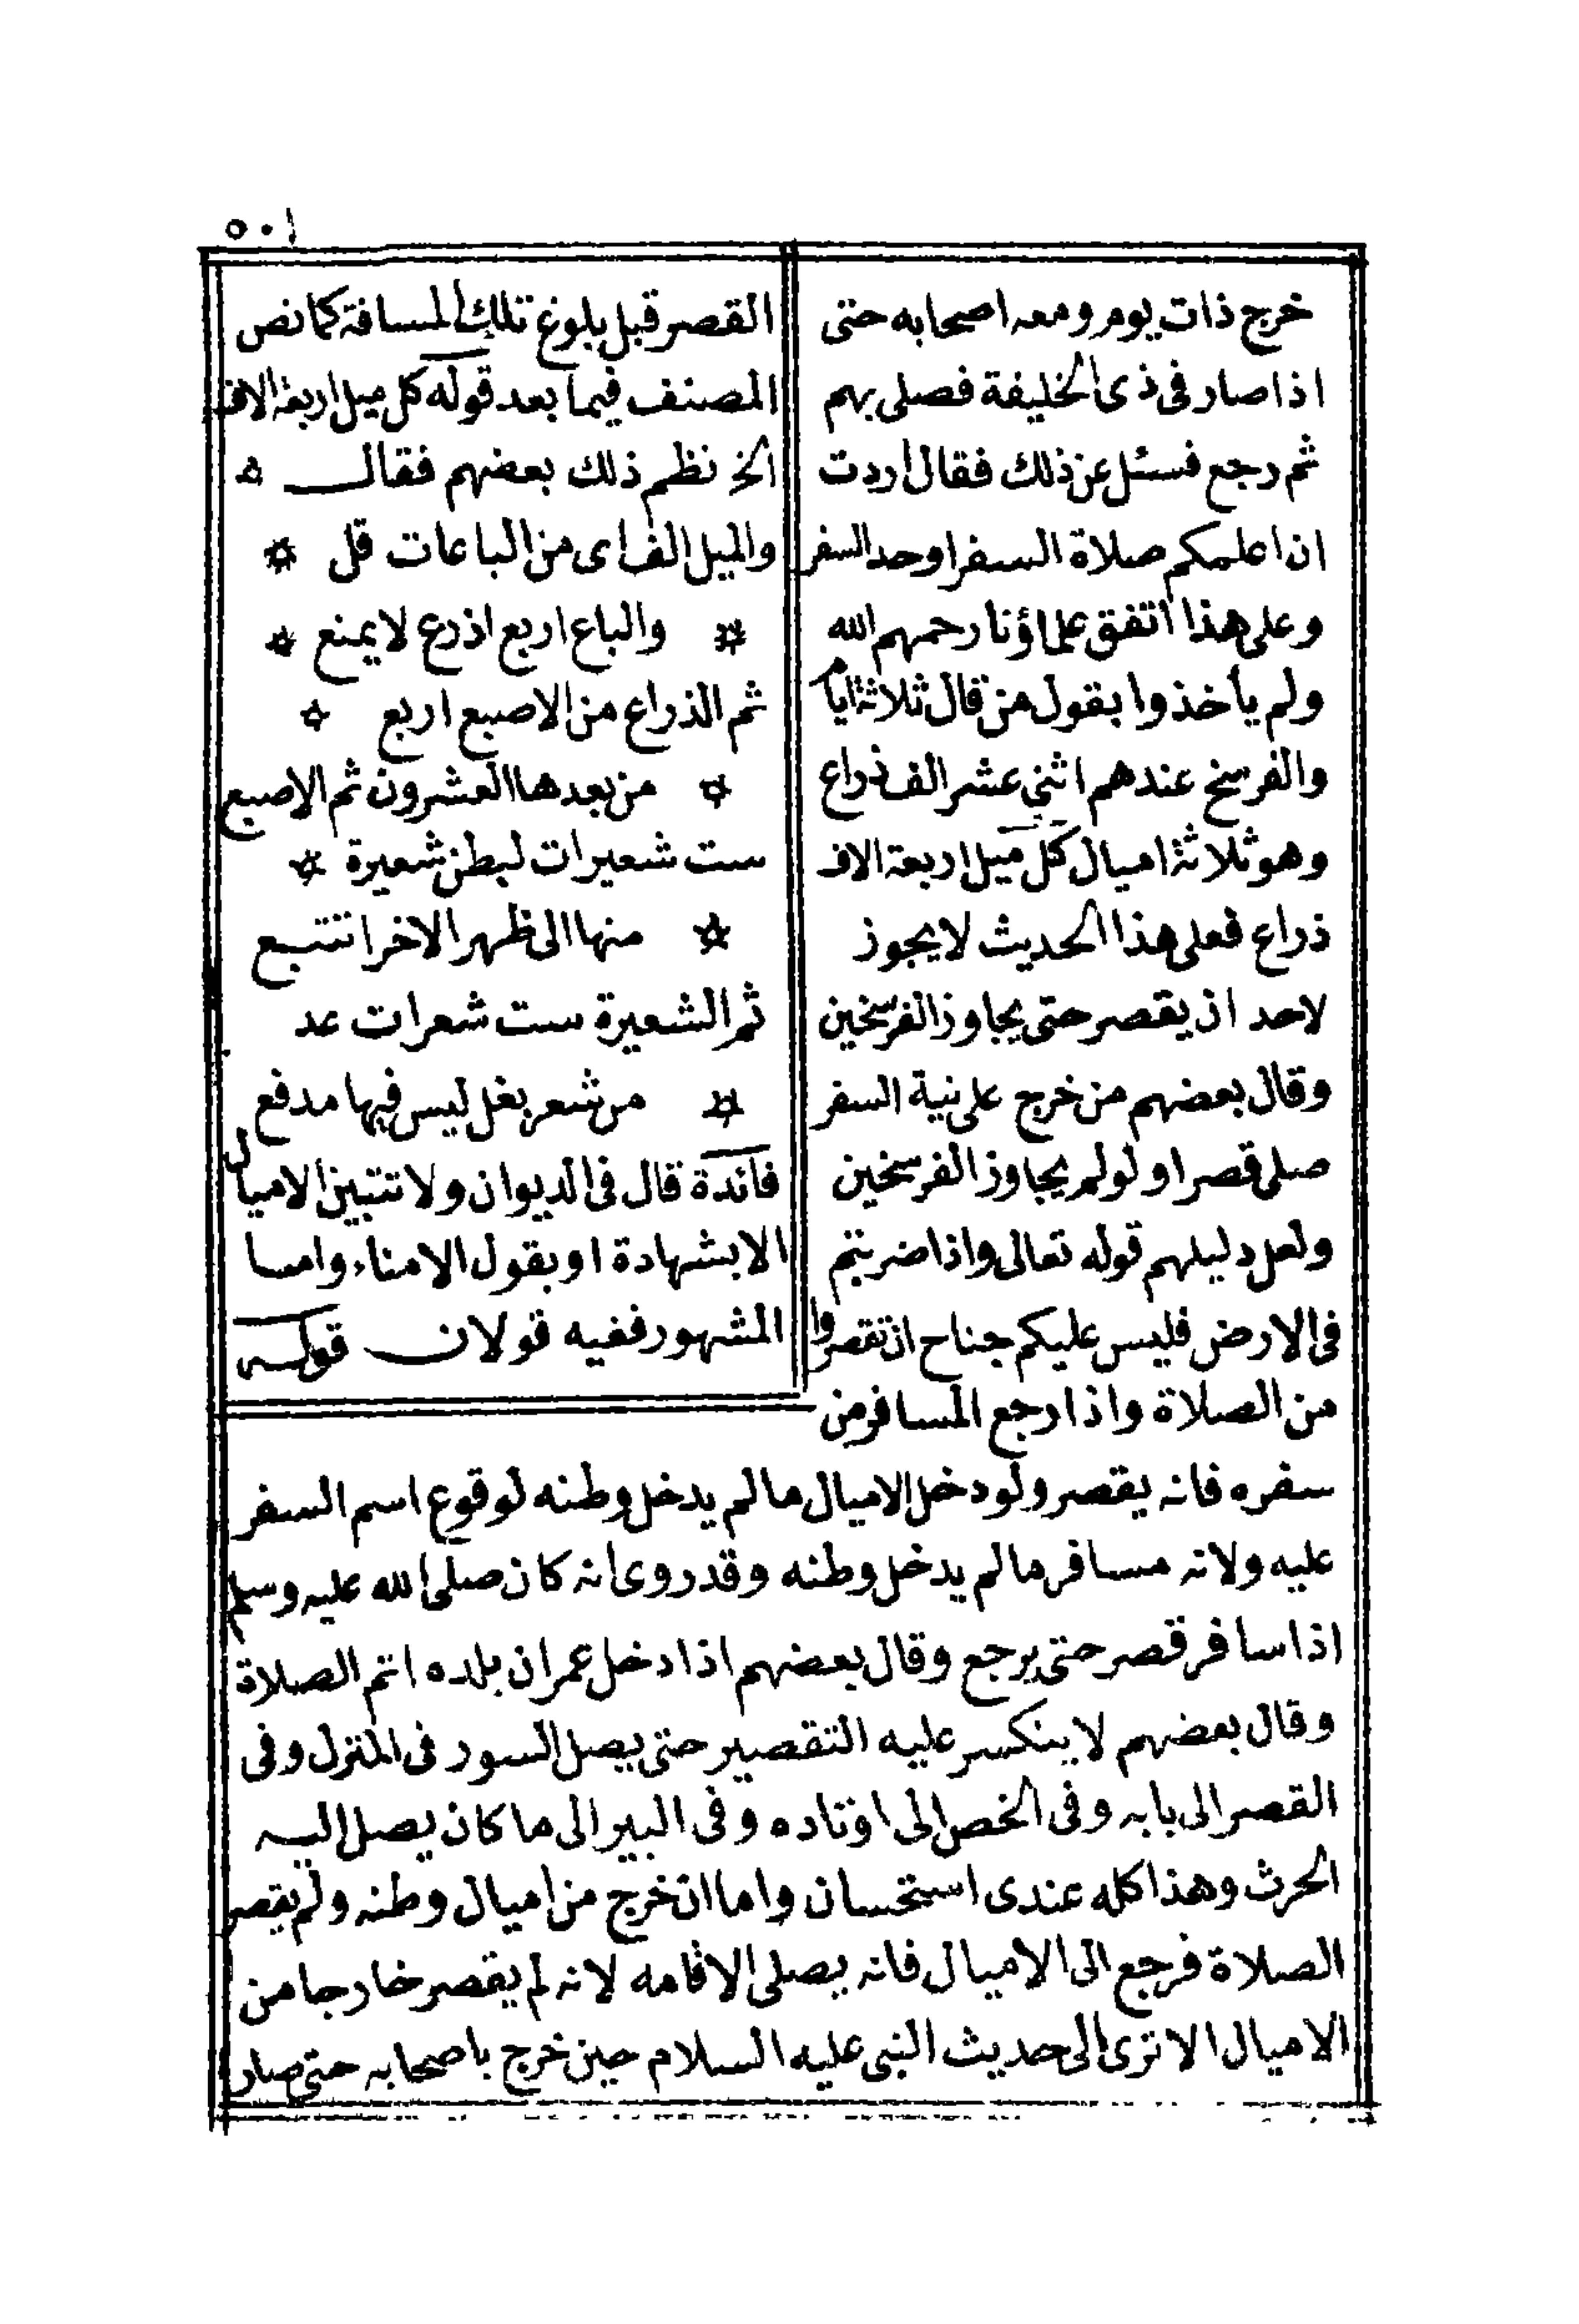 ٥٠١
خرج ذات يوم ومعه اصحابه حتى
اذا صار فى ذى الخليفة فصلى بهم
ثم رجع فسئل عن ذلك فقال اردت
ان اعلمكم صلاة السفر او حد السفر
وعلى هذا اتفق علماؤنا رحمهم الله
ولم يأخذوا بقول من قال ثلاثة ايام
والفرسخ عندهم اثني عشر الف ذراع
وهو ثلاثة اميال كل ميل اربعة الاف
ذراع فعلى هذا الحديث لا يجوز
لاحد ان يقصر حتى يجاوز الفرسخين
وقال بعضهم من خرج على نية السفر
صلى قصرا ولو لم يجاوز الفرسخين
ولعل دليلهم قوله تعالى واذا ضربتم
فى الارض فليس عليكم جناح ان تقصروا
من الصلاة واذا رجع المسافر من
القصر قبل بلوغ تلك المسافة كما نص
المصنف فيما بعد قوله كل ميل اربعة الاف
الخ نظم ذلك بعضهم فقال
والميل الف اى من الباعات قل
والباع اربع اذرع لا يمنع
ثم الذراع من الاصبع اربع
من بعدها العشرون ثم الاصبع
ست شعيرات لبطن شعيرة
منها الى ظهر الاخرا تتبع
ثم الشعيرة ست شعرات عد
من شعر بغل ليس فيها مدفع
فائدة قال فى الديوان ولا تتبين الاميال
الا بشهادة او بقول الامناء واما
المشهور ففيه قولان قوله
سفره فانه يقصر ولو دخل الاميال ما لم يدخل وطنه لوقوع اسم السفر
عليه ولانه مسافر ما لم يدخل وطنه وقد روى انه كان صلى الله عليه وسلم
اذا سافر قصر حتى يرجع وقال بعضهم اذا دخل عمران بلده اتم الصلاة
وقال بعضهم لا ينكسر عليه التقصير حتى يصل السور فى المنزل وفى
القصر الى بابه وفى الخص الى اوتاده وفى البير الى ما كان يصل اليه
الحرث وهذا كله عندى استحسان واما ان خرج من اميال وطنه ولم يقصر
الصلاة فرجع الى الاميال فانه يصلى الاقامه لانه لم يقصر خارجا من
الاميال الا ترى الى حديث النبى عليه السلام حين خرج باصحابه حتى صار